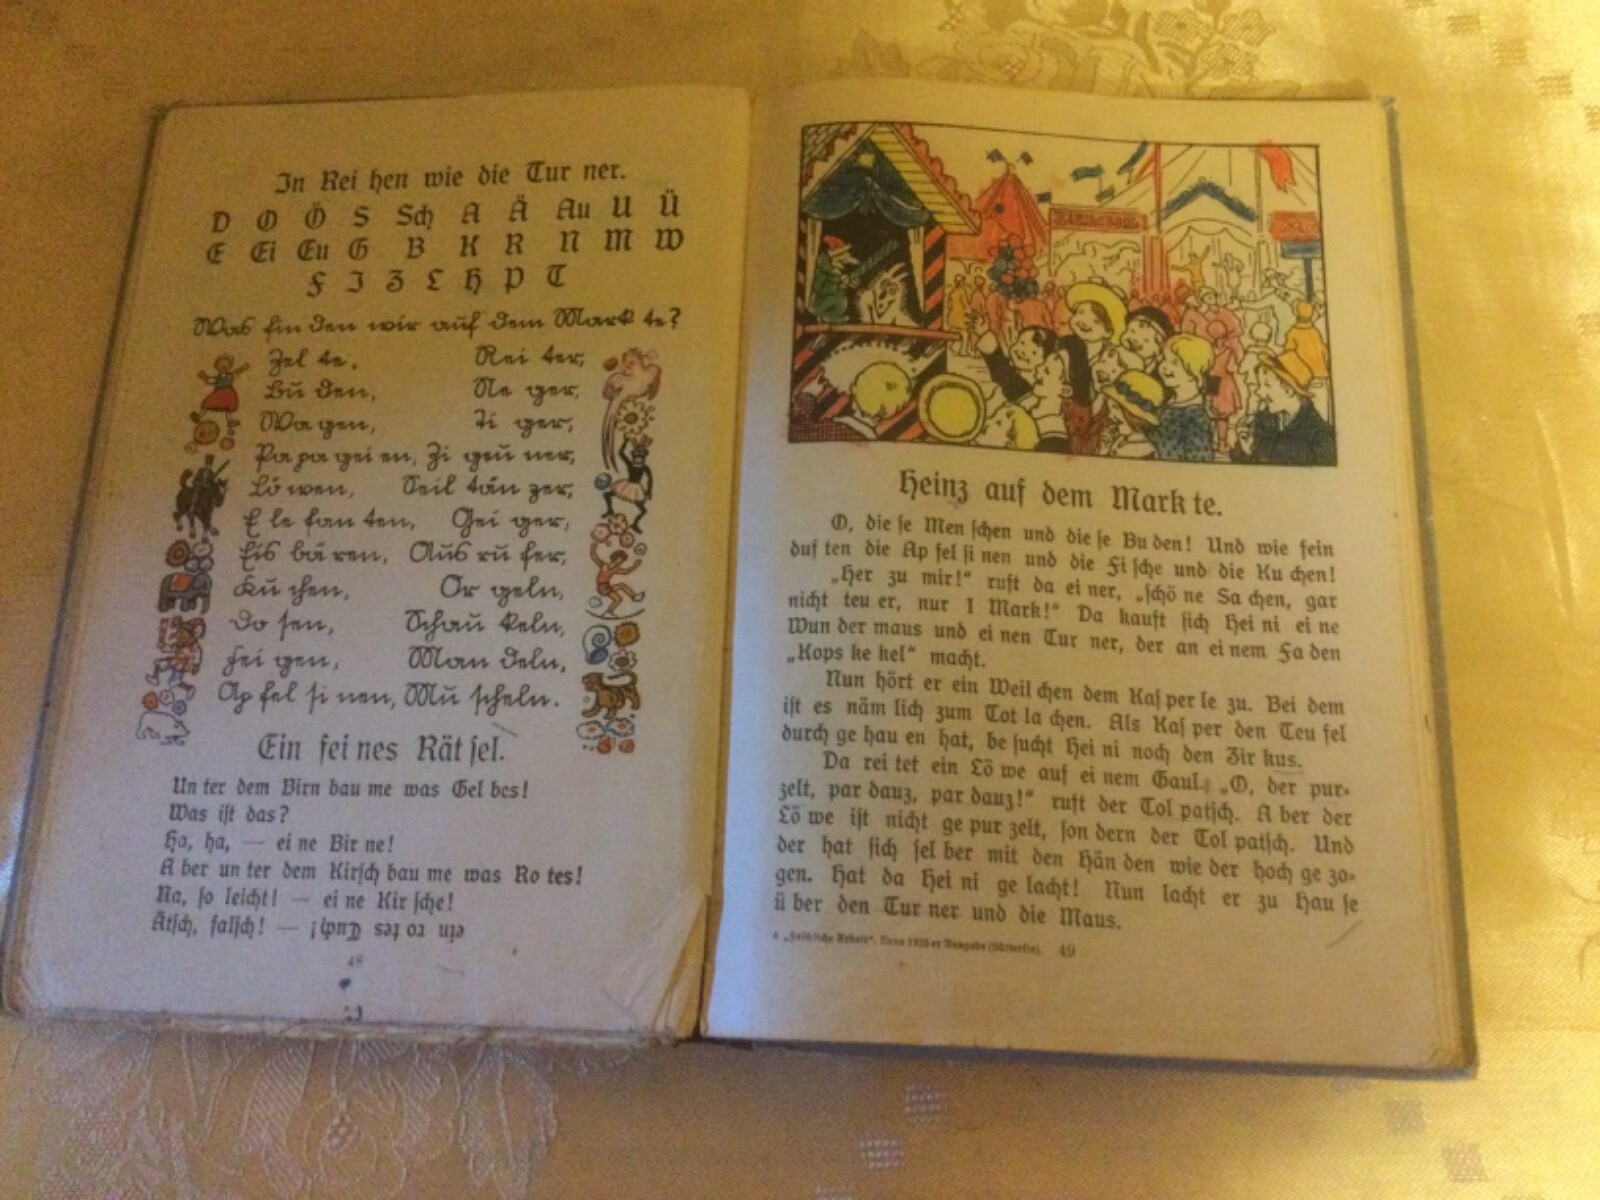 In Rei hen wie die Tur ner.
D O Ö S Sch A Ä Au U Ü
E Ei Eu G B K R N M W
F I Z L H P T
Was fin den wir auf dem Mark te?
Zel te, Rei ter,
Bu den, Ne ger,
Wa gen, Ti ger,
Pa pa gei en, Zi geu ner,
Lö wen, Seil tän zer,
E le fan ten, Gei ger,
Eis bä ren, Aus ru fer,
Ku chen, Or geln,
Do sen, Schau keln,
Fei gen, Man deln,
Ap fel si nen, Mu scheln.
Ein fei nes Rät sel.
Un ter dem Birn bau me was Gel bes!
Was ist das?
Ha, ha, — ei ne Bir ne!
A ber un ter dem Kirsch bau me was Ro tes!
Na, so leicht! — ei ne Kir sche!
Ätsch, falsch! — ein ro tes Tuch!
48
Heinz auf dem Mark te.
O, die se Men schen und die se Bu den! Und wie fein
duf ten die Ap fel si nen und die Fi sche und die Ku chen!
„Her zu mir!“ ruft da ei ner, „schö ne Sa chen, gar
nicht teu er, nur 1 Mark!“ Da kauft sich Hei ni ei ne
Wun der maus und ei nen Tur ner, der an ei nem Fa den
„Kops ke kel“ macht.
Nun hört er ein Weil chen dem Kas per le zu. Bei dem
ist es näm lich zum Tot la chen. Als Kas per den Teu fel
durch ge hau en hat, be sucht Hei ni noch den Zir kus.
Da rei tet ein Lö we auf ei nem Gaul. „O, der pur-
zelt, par dauz, par dauz!“ ruft der Tol patsch. A ber der
Lö we ist nicht ge pur zelt, son dern der Tol patsch. Und
der hat sich sel ber mit den Hän den wie der hoch ge zo-
gen. Hat da Hei ni ge lacht! Nun lacht er zu Hau se
ü ber den Tur ner und die Maus.
4 „Fröhliche Arbeit“. Neue 1926er Ausgabe (Sütterlin). 49